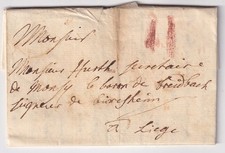 Monsieur
Monsieur Hurth secretaire
de Mons le baron de Breidbach
Seigneur de Büresheim
a Liege